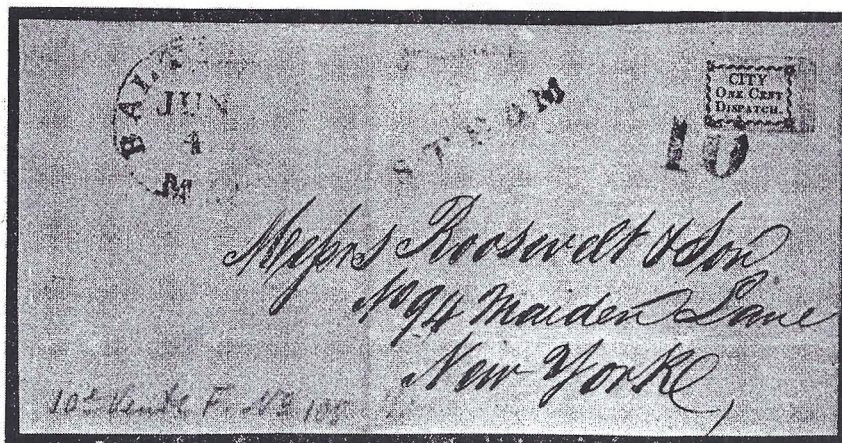 BALT
JUN
4
Md
STEAM
CITY
ONE CENT
DISPATCH.
10
Messrs Roosevelt & Son
No 94 Maiden Lane
New York
10e Vente F. No 105